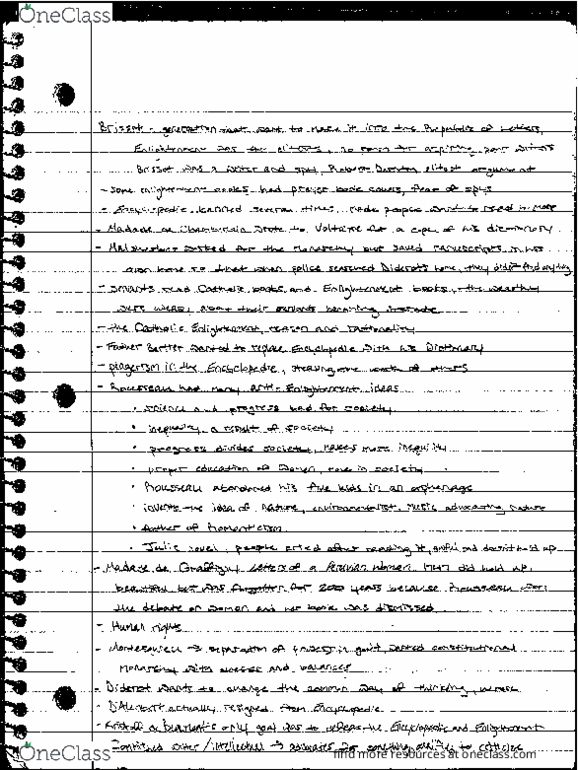 OneClass
Brissot - generation that want to make it into the Republic of Letters,
Enlightenment was for elitests, no room for aspiring poor writers
Brissot was a writer and spy, Robert Darnton elitest argument
- some enlightenment books had prayer book covers, fear of spys
- Encyclopedic banned several times, made people want to read it more
- Madade de wrote to Voltaire for a copy of his dictionary
- Malesherbes worked for the monarchy but saved manuscripts in his
own home so that when police searched Diderots home, they didnt find anything
- servants read Catholic books and Enlightenment books, the wealthy
were about their servants becoming literate
- the Catholic Enlightenment, reason and rationality
- Father wanted to replace Encyclopedie with his Dictionary
- plagerism in the Encyclopedie, stealing the work of others
- Rousseau had many anti-Enlightenment ideas
• science and progress bad for society
• inequality a result of society
• progress divides society, makes more inequity
• proper education of women, role in society
• Rousseau abandoned his five kids in an orphenage
• invents the idea of nature, environmentalist, music, advocating nature
• father of Romanticism
• Julie novel, people cried after reading it, awful and doesnt hold up
- Madame de Graffigny Letters of a Peruvian Women 1747 did hold up,
beautiful but was forgotten for 200 years because Rousseau won
the debate on women and her book was dismissed
- Human rights
- Montesquieu → separation of powers in govt, wanted constitutional
Monarchy with checks and balances
- Diderot wants to change the common way of thinking,
- D'Alembert actually resigned from Encyclopedie
- only goal was to the Encyclopedie and Enlightenment
writer / intellectual → advocates for something to criticise
OneClass
find more resources at oneclass.com